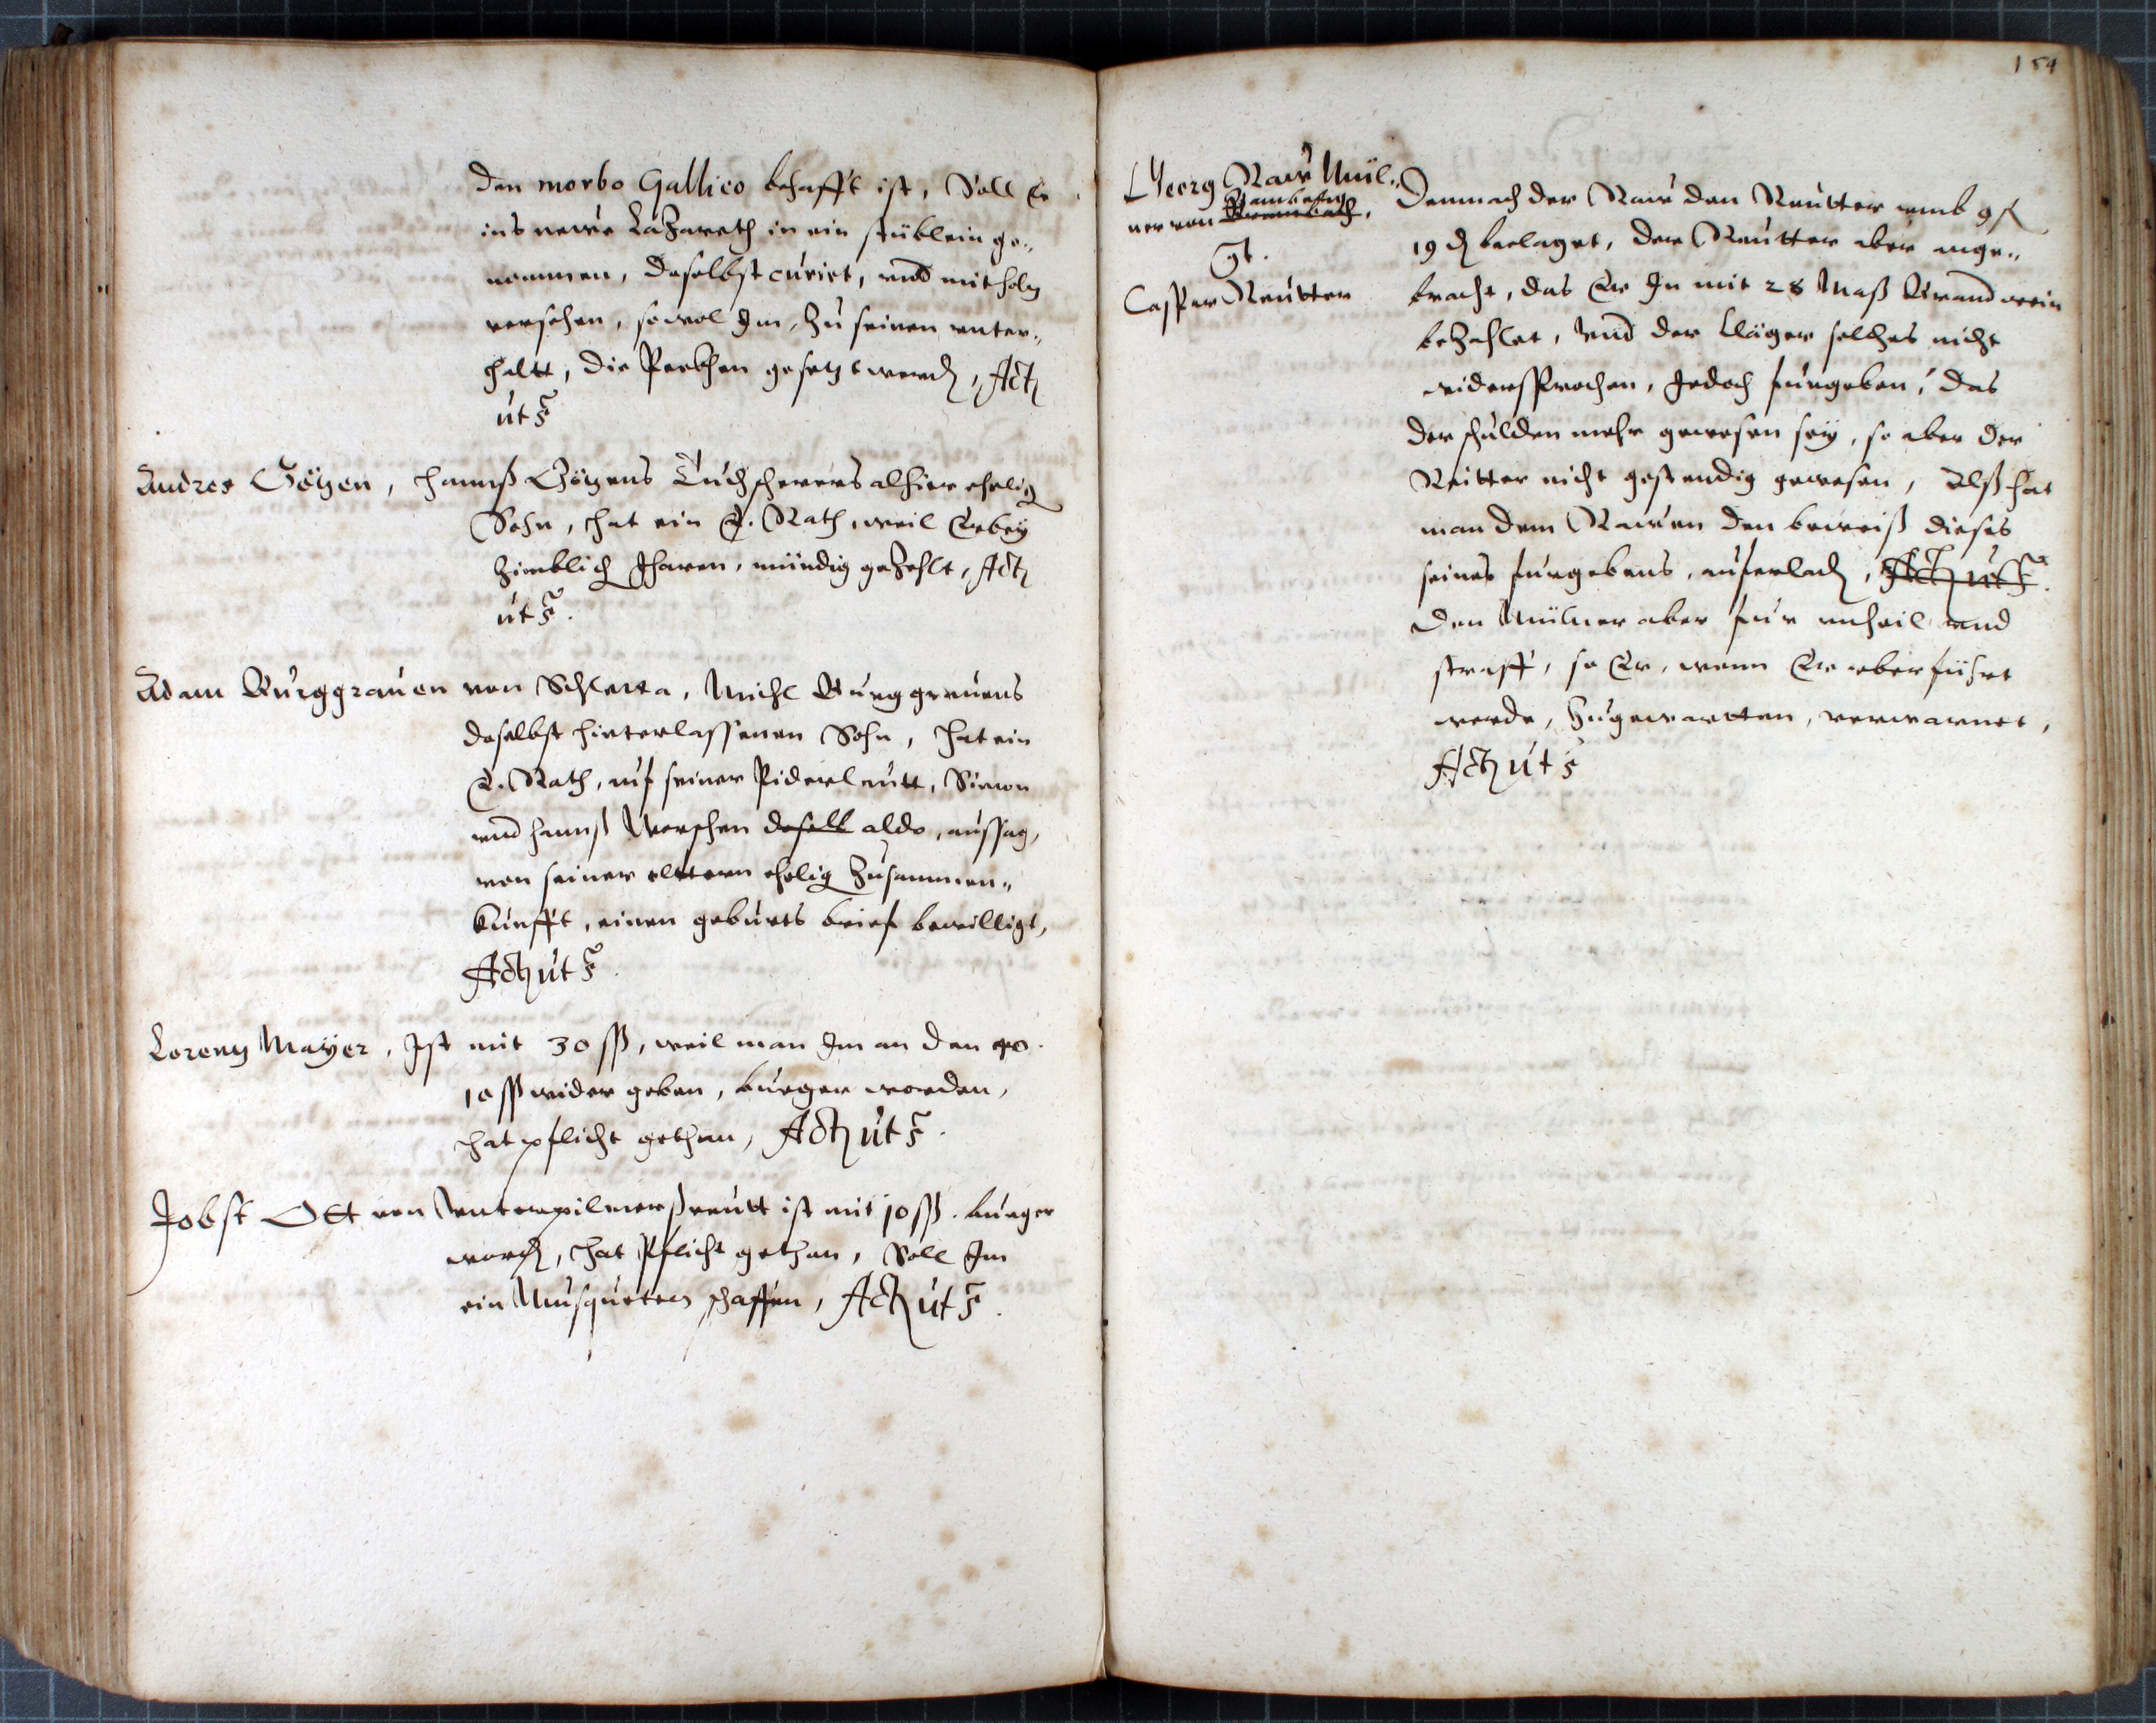 den morbo Gallico behafft ist, Soll Er
ins newe Lazareth in ein stüblein ge„
nommen, daselbst curirt, vnd mit holz
versehen, sowol Im, zu seinen vnter„
haltt, die Pechsen gesetzt werdn, Actn
ut s
Andres Götzen, Hannß Götzens Tuchscherers alhier ehelig
Sohn, hat ein E. Rath, weil Er bey
zimblich Jharen, mündig gezehlt, Actn
ut s.
Adam Burggrauen von Schletta, Michl Burggrauens
daselbst hinterlassenen Sohn, hat ein
E. Rath, uf seiner Piderleutt, Simon
vnd Hannß daselb aldo, aussag,
von seiner elttern ehelig zusammen„
kunfft, einen geburts brief bewilligt,
Actn ut s.
Lorentz Mayer, Ist mit 30 ß, weil man Im an den 40.
10 ß wider geben, burger worden,
hat pflicht gethan, Actn ut s.
Jobst Ott von Vnterpilmerßreutt ist mit 10 ß. burger
wordn, hat Pflicht gethan, Soll Im
ein Musqueten schaffen, Actn ut s.
154
Georg Raw Mül„
ner von
Ct.
Casper Reutter
Demnach der Raw den Reutter vmb 9 f
19 d beclaget, der Reutter aber ange„
bracht, das Er In mit 28 Maß Brandwein
bezahlet, Vnd der Cläger solches nicht
widersprochen, Jedoch furgeben, das
der schulden mehr gewesen sey, so aber der
Reitter nicht gestendig gewesen, Alß hat
man dem Rawen den beweiß dieses
seines furgebens, auferladn, Actn ut s.
Den Mülner aber fur vnheil vnd
straff, so Er, wenn Er vberführt
werde, zugewartten, verwarnet,
Actn ut s